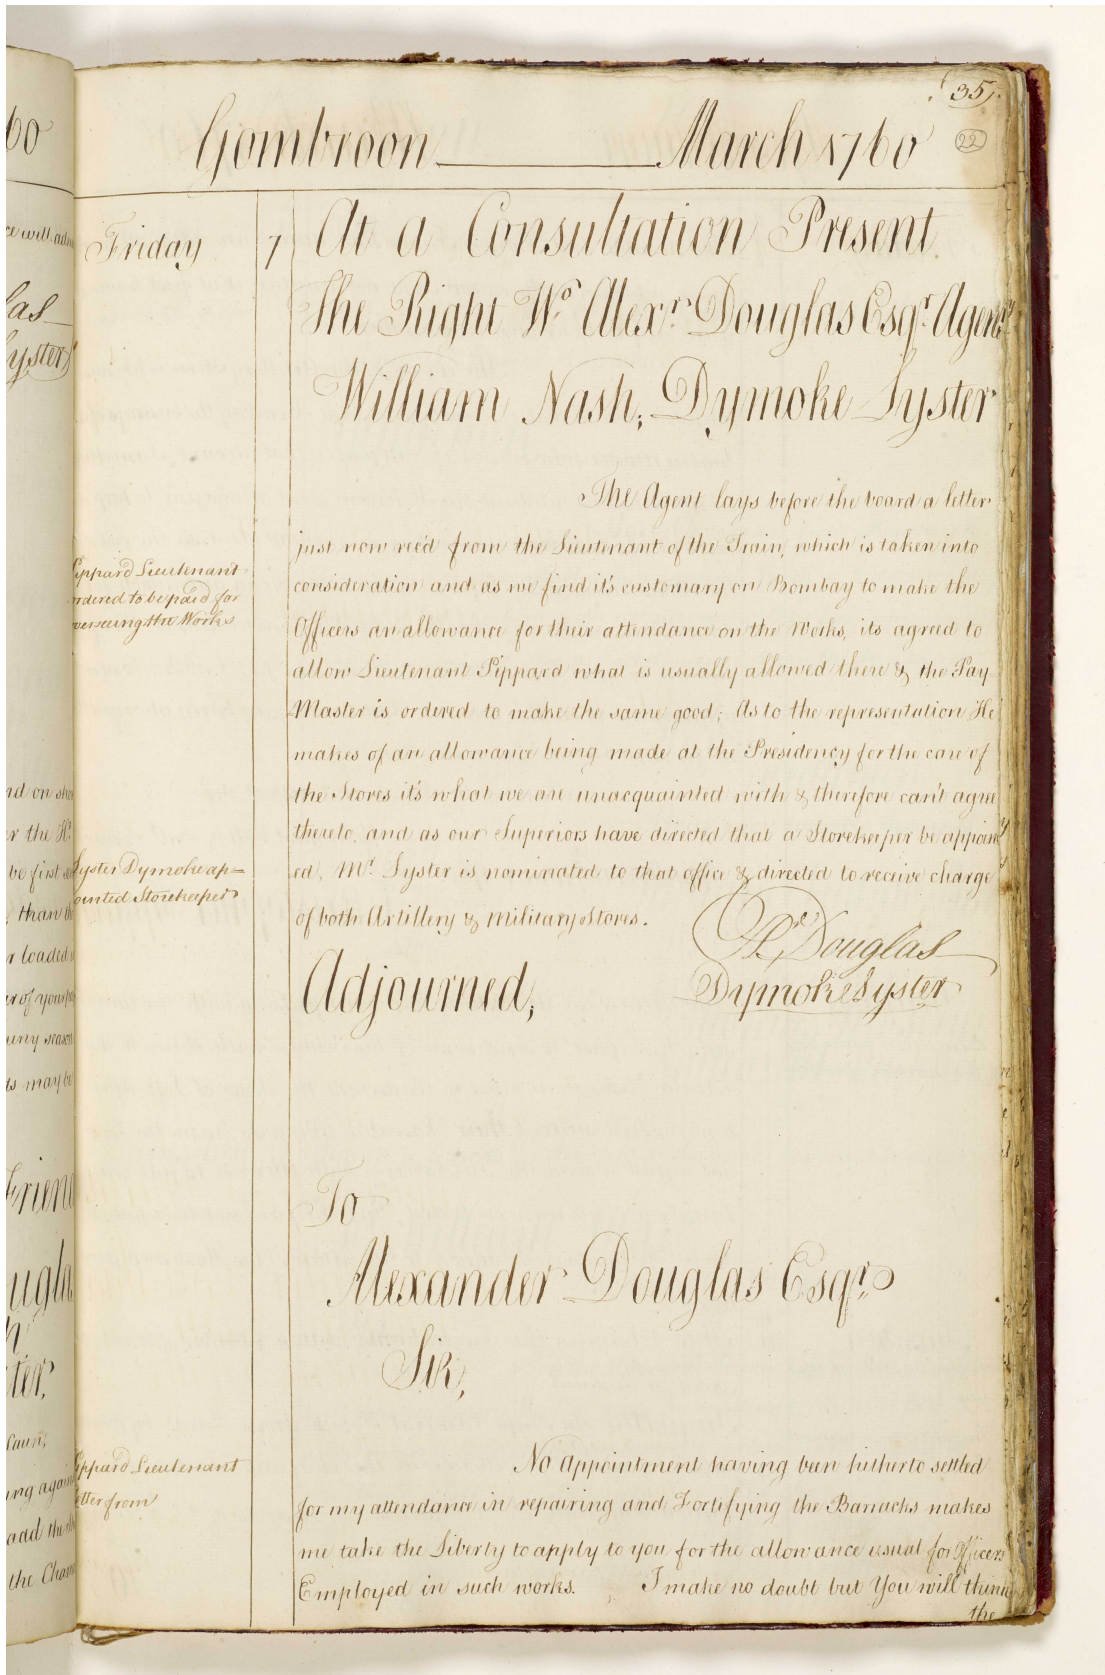 (35).
22
Gombroon March 1760
Friday 7 At a Consultation Present
The Right Wo. Alexr. Douglas Esqr. Agent
William Nash, Dymoke Lyster
The Agent lays before the board a letter
just now rec'd from the Lieutenant of the Train, which is taken into
consideration and as we find it's customary on Bombay to make the
Officers an allowance for their attendance on the Works, its agreed to
allow Lieutenant Pippard what is usually allowed there & the Pay
Master is ordered to make the same good; As to the representation He
makes of an allowance being made at the Presidency for the care of
the Stores it's what we are unacquainted with & therefore can't agree
thereto, and as our Superiors have directed that a Storekeeper be appoint
ed, Mr. Lyster is nominated to that office & directed to receive charge
of both Artillery & Military Stores.
Pippard Lieutenant
ordered to be paid for
overseeing the Works
Lyster Dymoke ap=
pointed Storekeeper
Ar. Douglas
Dymoke Lyster
Adjourned,
To
Alexander Douglas Esqr.
Sir,
Pippard Lieutenant
letter from
No Appointment having been hitherto settled
for my attendance in repairing and Fortifying the Barracks makes
me take the Liberty to apply to you for the allowance usual for Officers
Employed in such works. I make no doubt but You will think
the